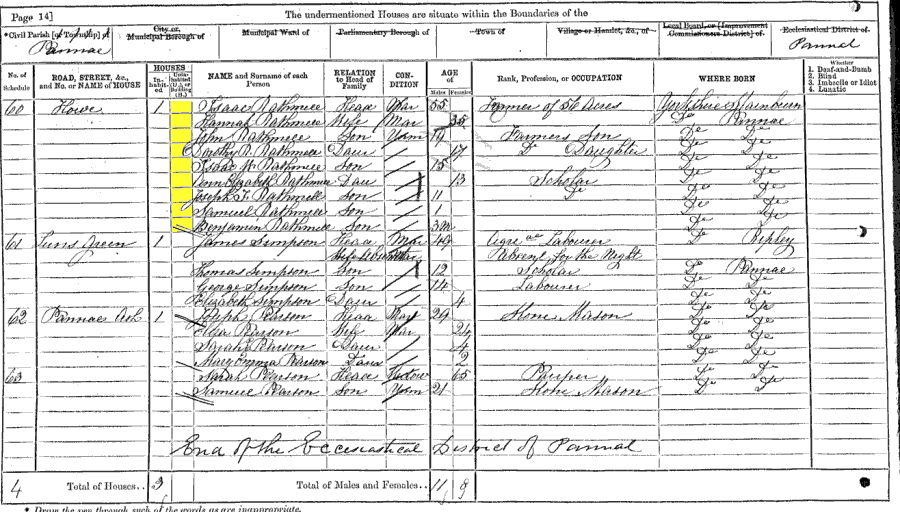 Page 14]
The undermentioned Houses are situate within the Boundaries of the
Civil Parish [or Township] of Pannal
City or Municipal Borough of
Municipal Ward of
Parliamentary Borough of
Town of
Village or Hamlet, &c., of
Local Board, or [Improvement Commissioners District] of
Ecclesiastical District of Pannal
No. of Schedule
ROAD, STREET, &c., and No. or NAME of HOUSE
HOUSES
In-habit-ed
Unin-habited (U.), or Building (B.)
NAME and Surname of each Person
RELATION to Head of Family
CON-DITION
AGE of
Males
Females
Rank, Profession, or OCCUPATION
WHERE BORN
Whether
1. Deaf-and-Dumb
2. Blind
3. Imbecile or Idiot
4. Lunatic
60 1 Isaac Rathmell Head Mar 55 Farmer of 56 Acres Yorkshire
Hannah Rathmell Wife Mar Do Pannal
John Rathmell Son Farmers Son Do Do
Dorothy Rathmell Daur 17 Do Daughter Do Do
Isaac W Rathmell Son 15 Do Do
Ann Elizabeth Rathmell Daur 13 Scholar Do Do
Joseph T Rathmell Son 11 Do Do Do
Samuel Rathmell Son Do Do
Benjamin Rathmell Son 3m Do Do
61 Green 1 James Simpson Head Mar 49 Labourer Do Ripley
Wife Absent for the Night
Thomas Simpson Son 12 Scholar Do Pannal
George Simpson Son 14 Labourer Do Do
Elizabeth Simpson Daur 4 Do Do
62 Pannal Ash 1 Joseph Pearson Head Mar 29 Stone Mason Do Do
Pearson Wife Mar 24 Do Do
Sarah Pearson Daur 4 Do Do
Mary Emma Pearson Daur 2 Do Do
63 Sarah Pearson Head Widow 65 Pauper Do Do
Samuel Pearson Son Unm 21 Stone Mason Do Do
End of the Ecclesiastical District of Pannal
4 Total of Houses.. 3 Total of Males and Females.. 11 9
* Draw the pen through such of the words as are inappropriate.